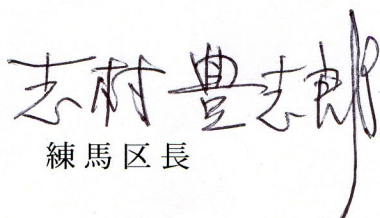 志村豊志郎
練馬区長